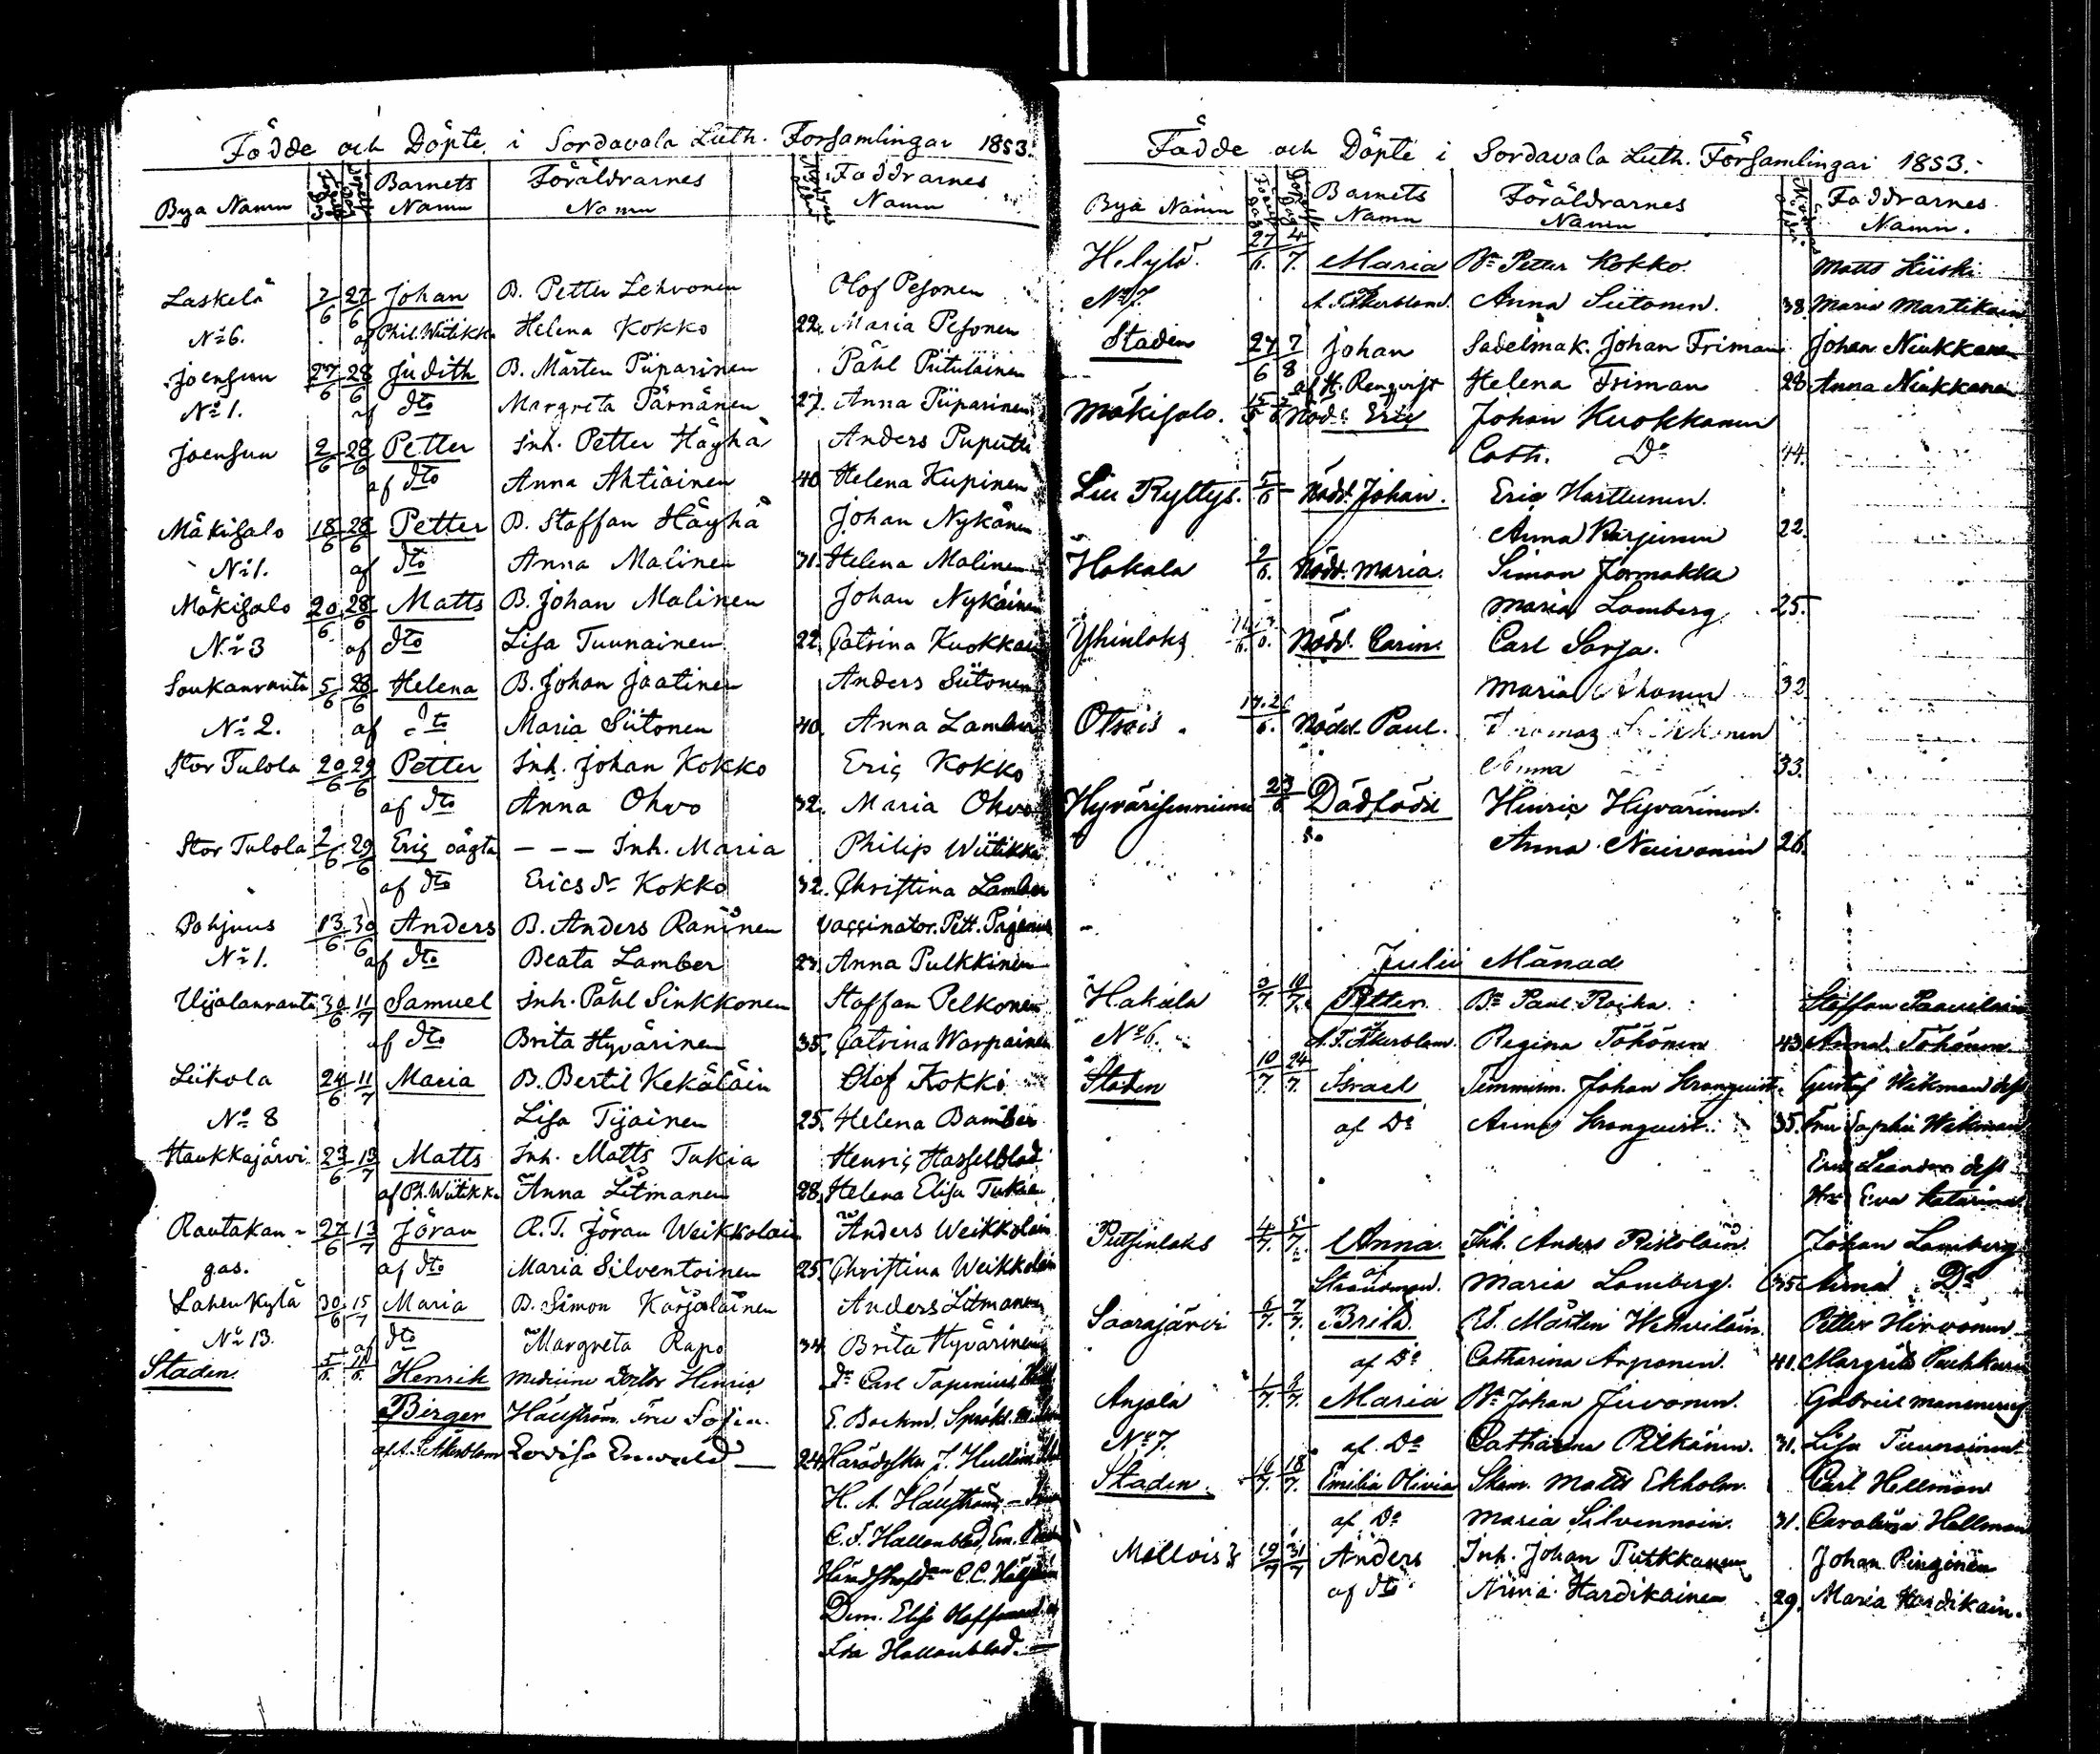 Födde och Döpte i Sordavala Luth. Församlingar 1853.
Bya Namn Födelse Dag Döpelse Dag Barnets Namn Föräldrarnes Namn Modrens Ålder Faddrarnes Namn
Laskelä 7/6 27/6 Johan B. Petter Lehvonen Olof Pesonen
No 6. af Phil. Wiitikka Helena Kokko 22. Maria Pesonen
Joensuu 27/6 28/6 Judith B. Mårten Piiparinen Påhl Piitulainen
No 1. af dto Margreta Pärnänen 27. Anna Piiparinen
Joensuu 2/6 28/6 Petter Inh. Petter Häyhä Anders Puputti
af dto Anna Ahtiainen 40 Helena Kupinen
Mäkisalo 18/6 28/6 Petter B. Staffan Häyhä Johan Nykänen
No 1. af dto Anna Malinen 31. Helena Malinen
Mäkisalo 20/6 28/6 Matts B. Johan Malinen Johan Nykäinen
No 3 af dto Lisa Tuunainen 22. Catrina Kuokkan
Soukanranta 5/6 28/6 Helena B. Johan Jaatinen Anders Siitonen
No 2. af dto Maria Siitonen 40. Anna Lamber
Stor Tulola 20/6 29/6 Petter Inh. Johan Kokko Eriç Kokko
af dto Anna Ohvo 32. Maria Ohvo
Stor Tulola 2/6 29/6 Eriç oägta – – – Inh. Maria Philip Wiitikka
af dto Erics dr Kokko 32. Christina Lamber
Pohjuus 13/6 30/6 Anders B. Anders Raninen Vaccinator. Pett. Pagenius
No 1. af dto Beata Lamber 23. Anna Pulkkinen
Uijalanranta 30/6 11/7 Samuel Inh. Påhl Sinkkonen Staffan Pelkonen
af dto Brita Hyvärinen 35. Catrina Warpainen
Liikola 24/6 11/7 Maria B. Bertil Kekäläin Olof Kokko
No 8 Lisa Tijainen 25. Helena Bamber
Haukkajärvi 23/6 13/7 Matts Inh. Matts Tukia Henriç Hasselblad
af Ph. Wiitikka Anna Litmanen 28. Helena Elisa Tukia
Rautakan- 27/6 13/7 Jöran R.T. Jöran Weikkolain Anders Weikkolain
gas. af dto Maria Silventoinen 25. Christina Weikkolain
Lahenkylä 30/6 15/7 Maria B. Simon Karjalainen Anders Litmanen
No 13. af dto Margreta Rapo 34 Brita Hyvärinen
Staden. 5/6 11/6 Henrik Medicine Doctor Henric Dr Carl Tapenius
Birger Hällström Fru Sofia E. Boehm
af A. F. Åkerblom Lovisa Enwald — 24.
H. A. Hällström
C. F. Hallonblad
C. C.
Dem. Elise Hoffmann
Hallonblad. —
Födde och Döpte i Sordavala Luth. Församlingar 1853.
Bya Namn Födelse Dag Döpelse Dag Barnets Namn Föräldrarnes Namn Modrens Ålder Faddrarnes Namn.
Helylä 27/6. 4/7. Maria Bn Petter Kokko. Matts Kiiski
No 7. A. F. Åkerblom. Anna Siitonen. 38. Maria Martikain
Staden 27/6 7/8 Johan Sadelmak. Johan Friman Johan Niukkanen
af H. Renqvist Helena Friman 28. Anna Niukkanen
Mäkisalo. 15/6 Nödd: Eric Johan Kuokkanen
Cath. Do 44.
Liu Ryttys. 5/6 – Nödd. Johan. Eric Harttunen.
Anna Karjunen 22.
Hakala 2/6. Nödd. Maria. Simon Jormakka
Maria Lamberg. 25.
Yhinlaks Nödd. Carin. Carl Sarja.
Maria 32
Otsois. 17. Nödd. Paul.
Anna 33.
Hyvärisenniemi 23/6 Dödfödd Hinric Hyvärinen.
Anna Neuvonen 26.
Julii Månad
Hakala 3/7. 10/7. Petter. Bn Paul Roiha. Staffan Paavilain
No 6. A. F. Åkerblom. Regina Töhönen 43. Anna Töhönen
Staden 10/7 24/7. Israel Timmerm. Johan Kronquist. Gustaf Wikman
af Do Anna Kronquist. 35. Fru Sophie Wikman
Leander
Eva Katarina
Putsinlaks 4/7. 5/7. Anna. Inh. Anders Rikolain. Johan Lamberg
af Strandman. Maria Lamberg. 35 Anna Do
Saarajärvi 6/7. 7/7. Brita. R.T. Mårten Hirvonen
af Do Catharina Arponen. 41. Margreta Puhkunen
Anjala 1/7. 9/7. Maria Bn Johan Juvonen. Gabriel
No 7. af Do Catharina Pitkänen. 31. Lisa Tuunainen
Staden. 16/7. 18/7. Emilia Olivia Skom. Matts Ekholm. Carl Hellman
af Do Maria Silvennoin. 31. Carolina Hellman
19/7 31/7 Anders Inh. Johan Putkkanen Johan Ringinen
af dto Anna Hardikainen 29. Maria Hardikain.